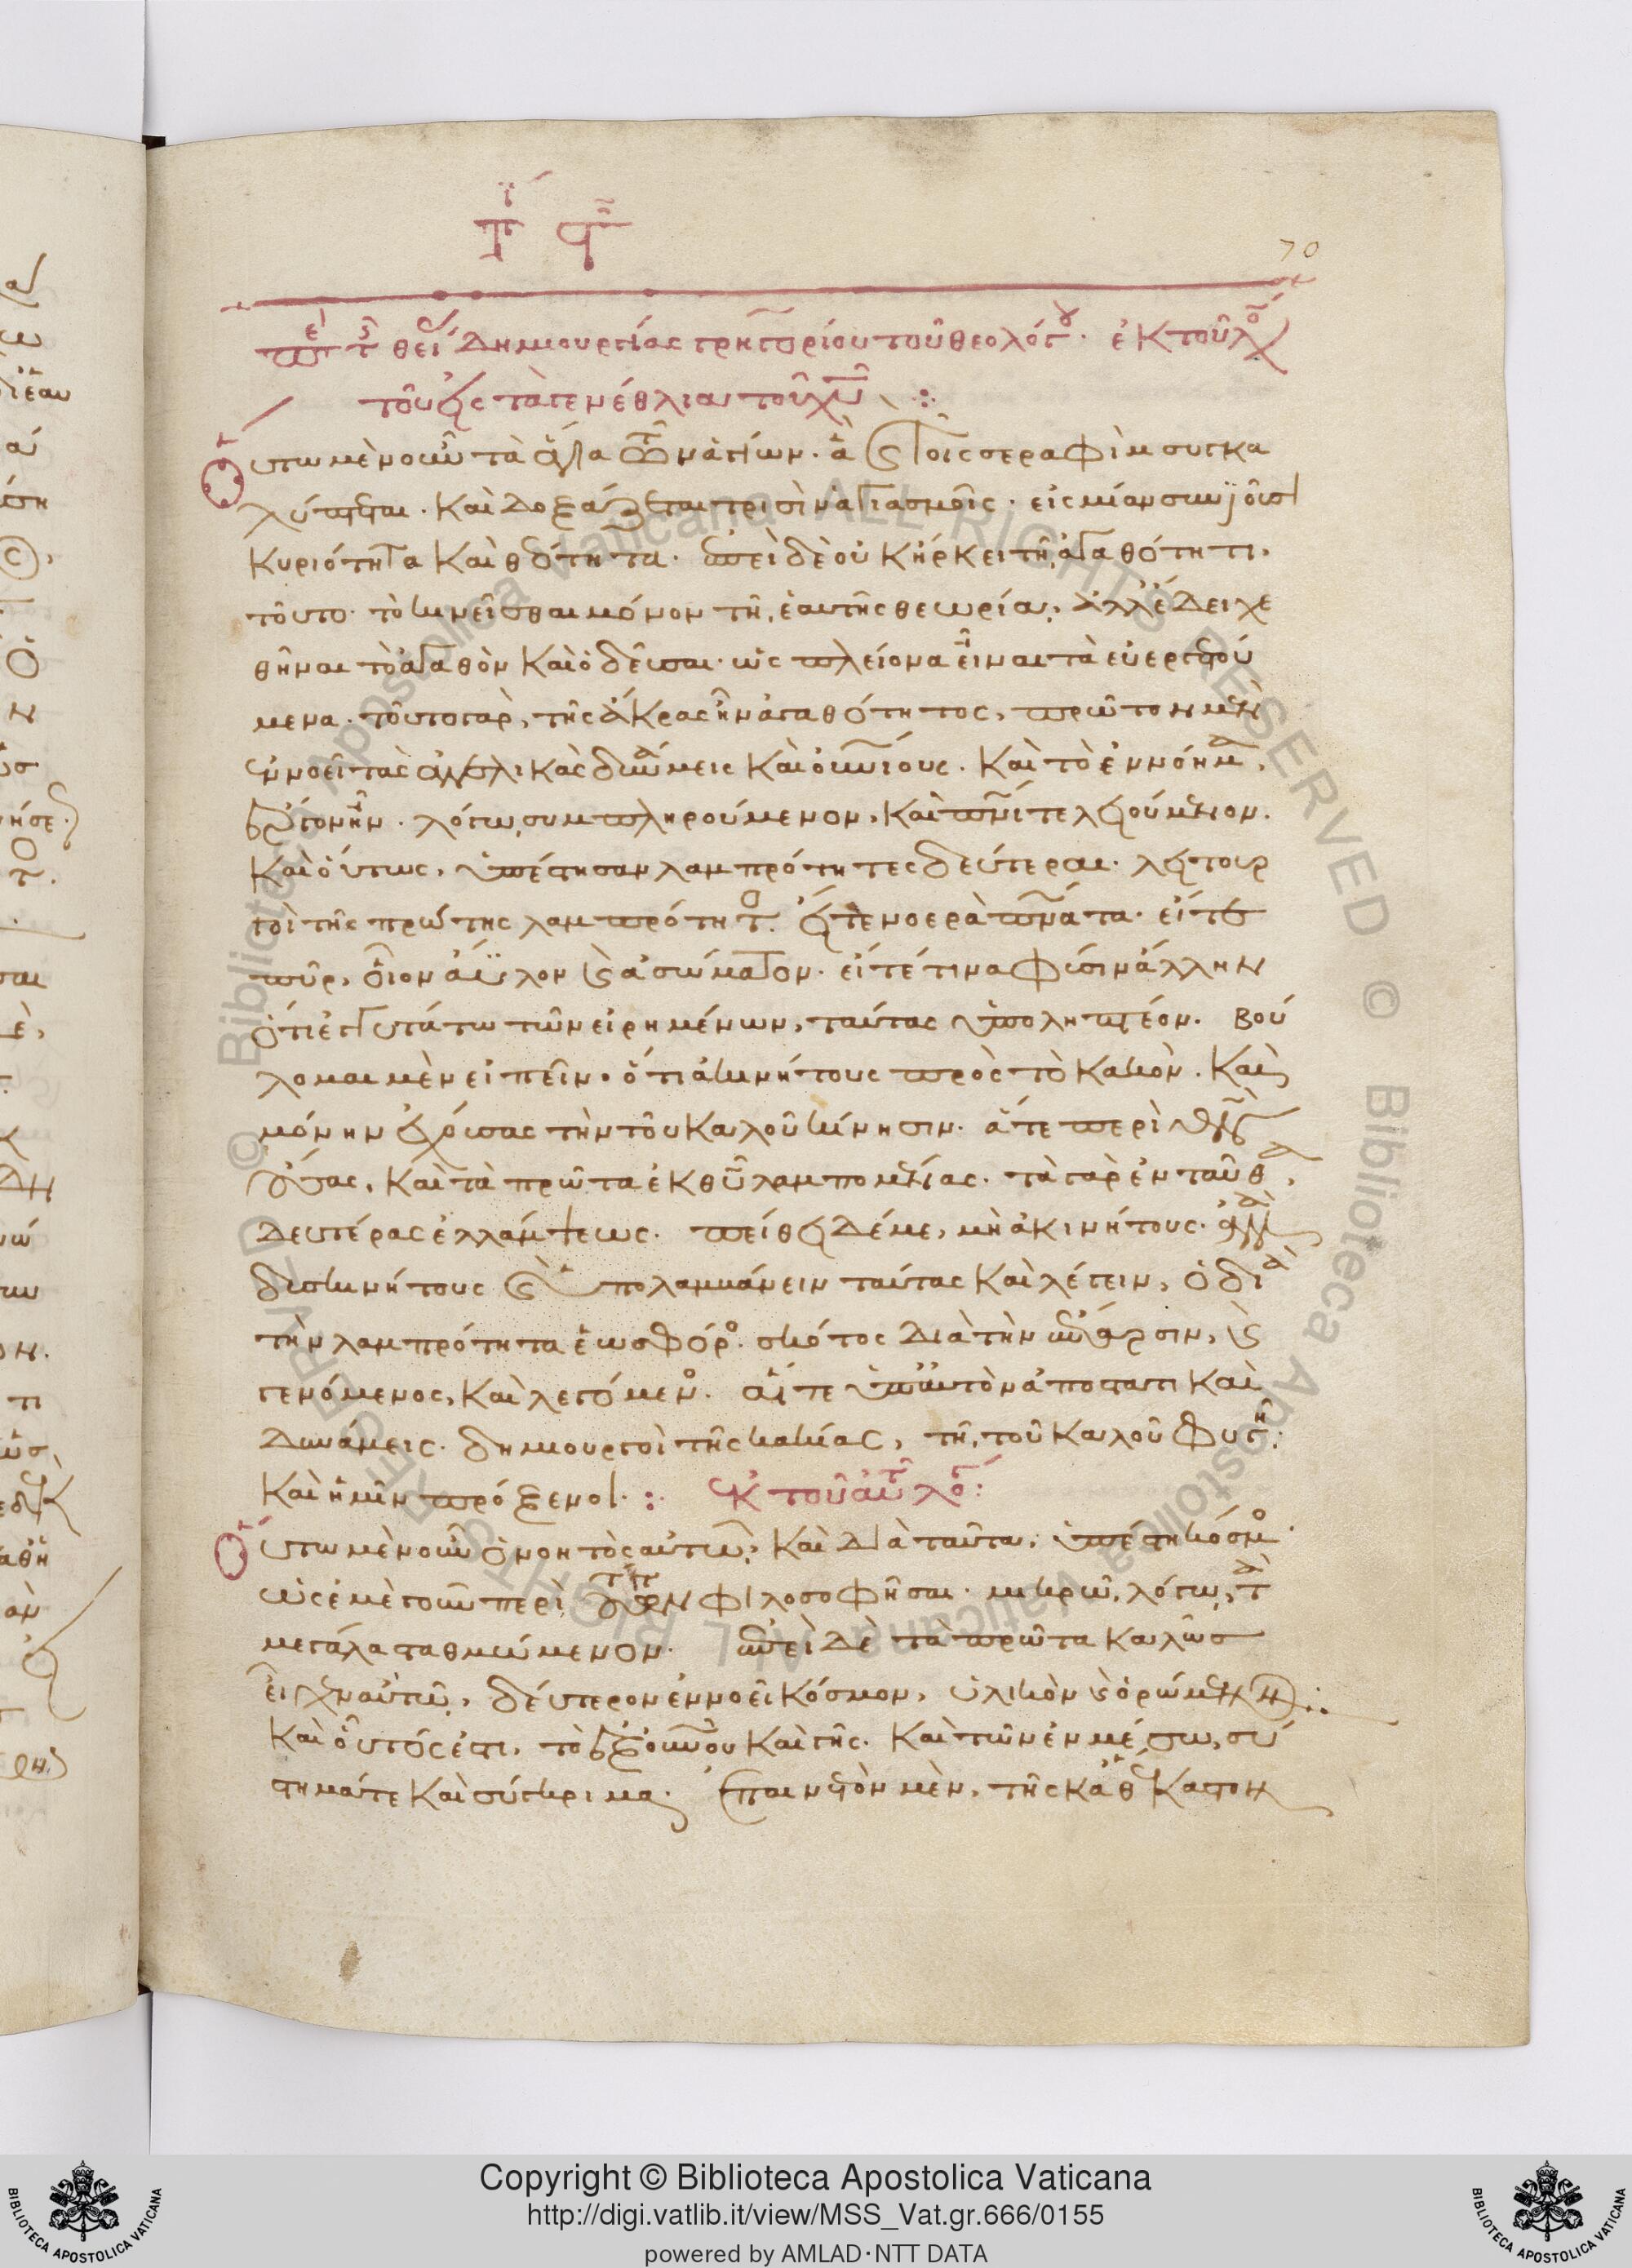 70
περὶ τῆς θείας δημιουργίας γρηγορίου τοῦ θεολόγου. ἐκ τοῦ λόγου
τοῦ εἰς τὰ γενέθλια τοῦ χυ
Οὕτω μὲν οὖν τὰ ἅγια τῶν ἁγίων. ἃ καὶ τοῖς σεραφὶμ συγκα
λύπτεται. καὶ δοξάζεται τρισὶν ἁγιασμοῖς. εἰς μίαν συνϊοῦσι
κυριότητα καὶ θεότητα. ἐπεὶ δὲ οὐκ ἤρκει τῇ ἀγαθότητι,
τοῦτο. τὸ κινεῖσθαι μόνον τῇ ἑαυτῆς θεωρίᾳ, ἀλλ' ἔδει χε
θῆναι τὸ ἀγαθὸν καὶ ὁδεῦσαι. ὡς πλείονα εἶναι τὰ εὐεργετού
μενα. τοῦτο γὰρ, τῆς ἄκρας ἦν ἀγαθότητος, πρῶτον μὲν
ἐννοεῖ τὰς ἀγγελικὰς δυνάμεις καὶ οὐνίους. καὶ τὸ ἐννόημα,
ἔργον ἦν. λόγῳ συμπληρούμενον, καὶ πνι τελειούμενον.
καὶ οὕτως, ὑπέστησαν λαμπρότητες δεύτεραι. λειτουρ
γοὶ τῆς πρώτης λαμπρότητος. εἴτε νοερὰ πνάτα. εἴτε
πῦρ, οἷον ἄϋλον καὶ ἀσώματον. εἴτέ τινα φύσιν ἄλλην
ὅτι ἐγγυτάτω τῶν εἰρημένων, ταύτας ὑποληπτέον. βού
λομαι μὲν εἰπεῖν. ὅτι ἀκινήτους πρὸς τὸ κακὸν. καὶ
μόνην ἐχούσας τὴν τοῦ καλοῦ κίνησιν. ἅτε περὶ θν
οὔσας, καὶ τὰ πρῶτα ἐκ θυ λαμπομένας. τὰ γὰρ ἐνταῦθα,
δευτέρας ἐλλάμψεως. πείθει δέ με, μὴ ἀκινήτους. ἀλλὰ
δυσκινήτους καὶ ὑπολαμβάνειν ταύτας καὶ λέγειν, ὁ διὰ
τὴν λαμπρότητα ἑωσφόρος. σκότος διὰ τὴν ἔπαρσιν, καὶ
γενόμενος, καὶ λεγόμενος. αἵ τε ὑπ' αὐτὸν ἀποστατικαὶ
δυνάμεις. δημιουργοὶ τῆς κακίας, τῇ τοῦ καλοῦ φυγῇ.
καὶ ἡμῖν πρόξενοι. ἐκ τοῦ αὐτοῦ λόγου:
Οὕτω μὲν οὖν ὁ νοητὸς αὐτῷ, καὶ διὰ ταῦτα, ὑπέστη κόσμος.
ὡς ἐμὲ γοῦν περὶ τούτων φιλοσοφῆσαι. μικρῷ λόγῳ, τὰ
μεγάλα σταθμώμενον. ἐπεὶ δὲ τὰ πρῶτα καλῶς
εἶχεν αὐτῷ, δεύτερον ἐννοεῖ κόσμον, ὑλικὸν καὶ ὁρώμενον.
καὶ οὗτός ἐστι, τὸ ἐξ οὐνοῦ καὶ γῆς. καὶ τῶν ἐν μέσῳ, σύ
στημά τε καὶ σύγκριμα. ἐπαινετὸν μὲν, τῆς καθ' ἕκαστον
Copyright © Biblioteca Apostolica Vaticana
http://digi.vatlib.it/view/MSS_Vat.gr.666/0155
powered by AMLAD·NTT DATA
BIBLIOTECA APOSTOLICA VATICANA
BIBLIOTECA APOSTOLICA VATICANA